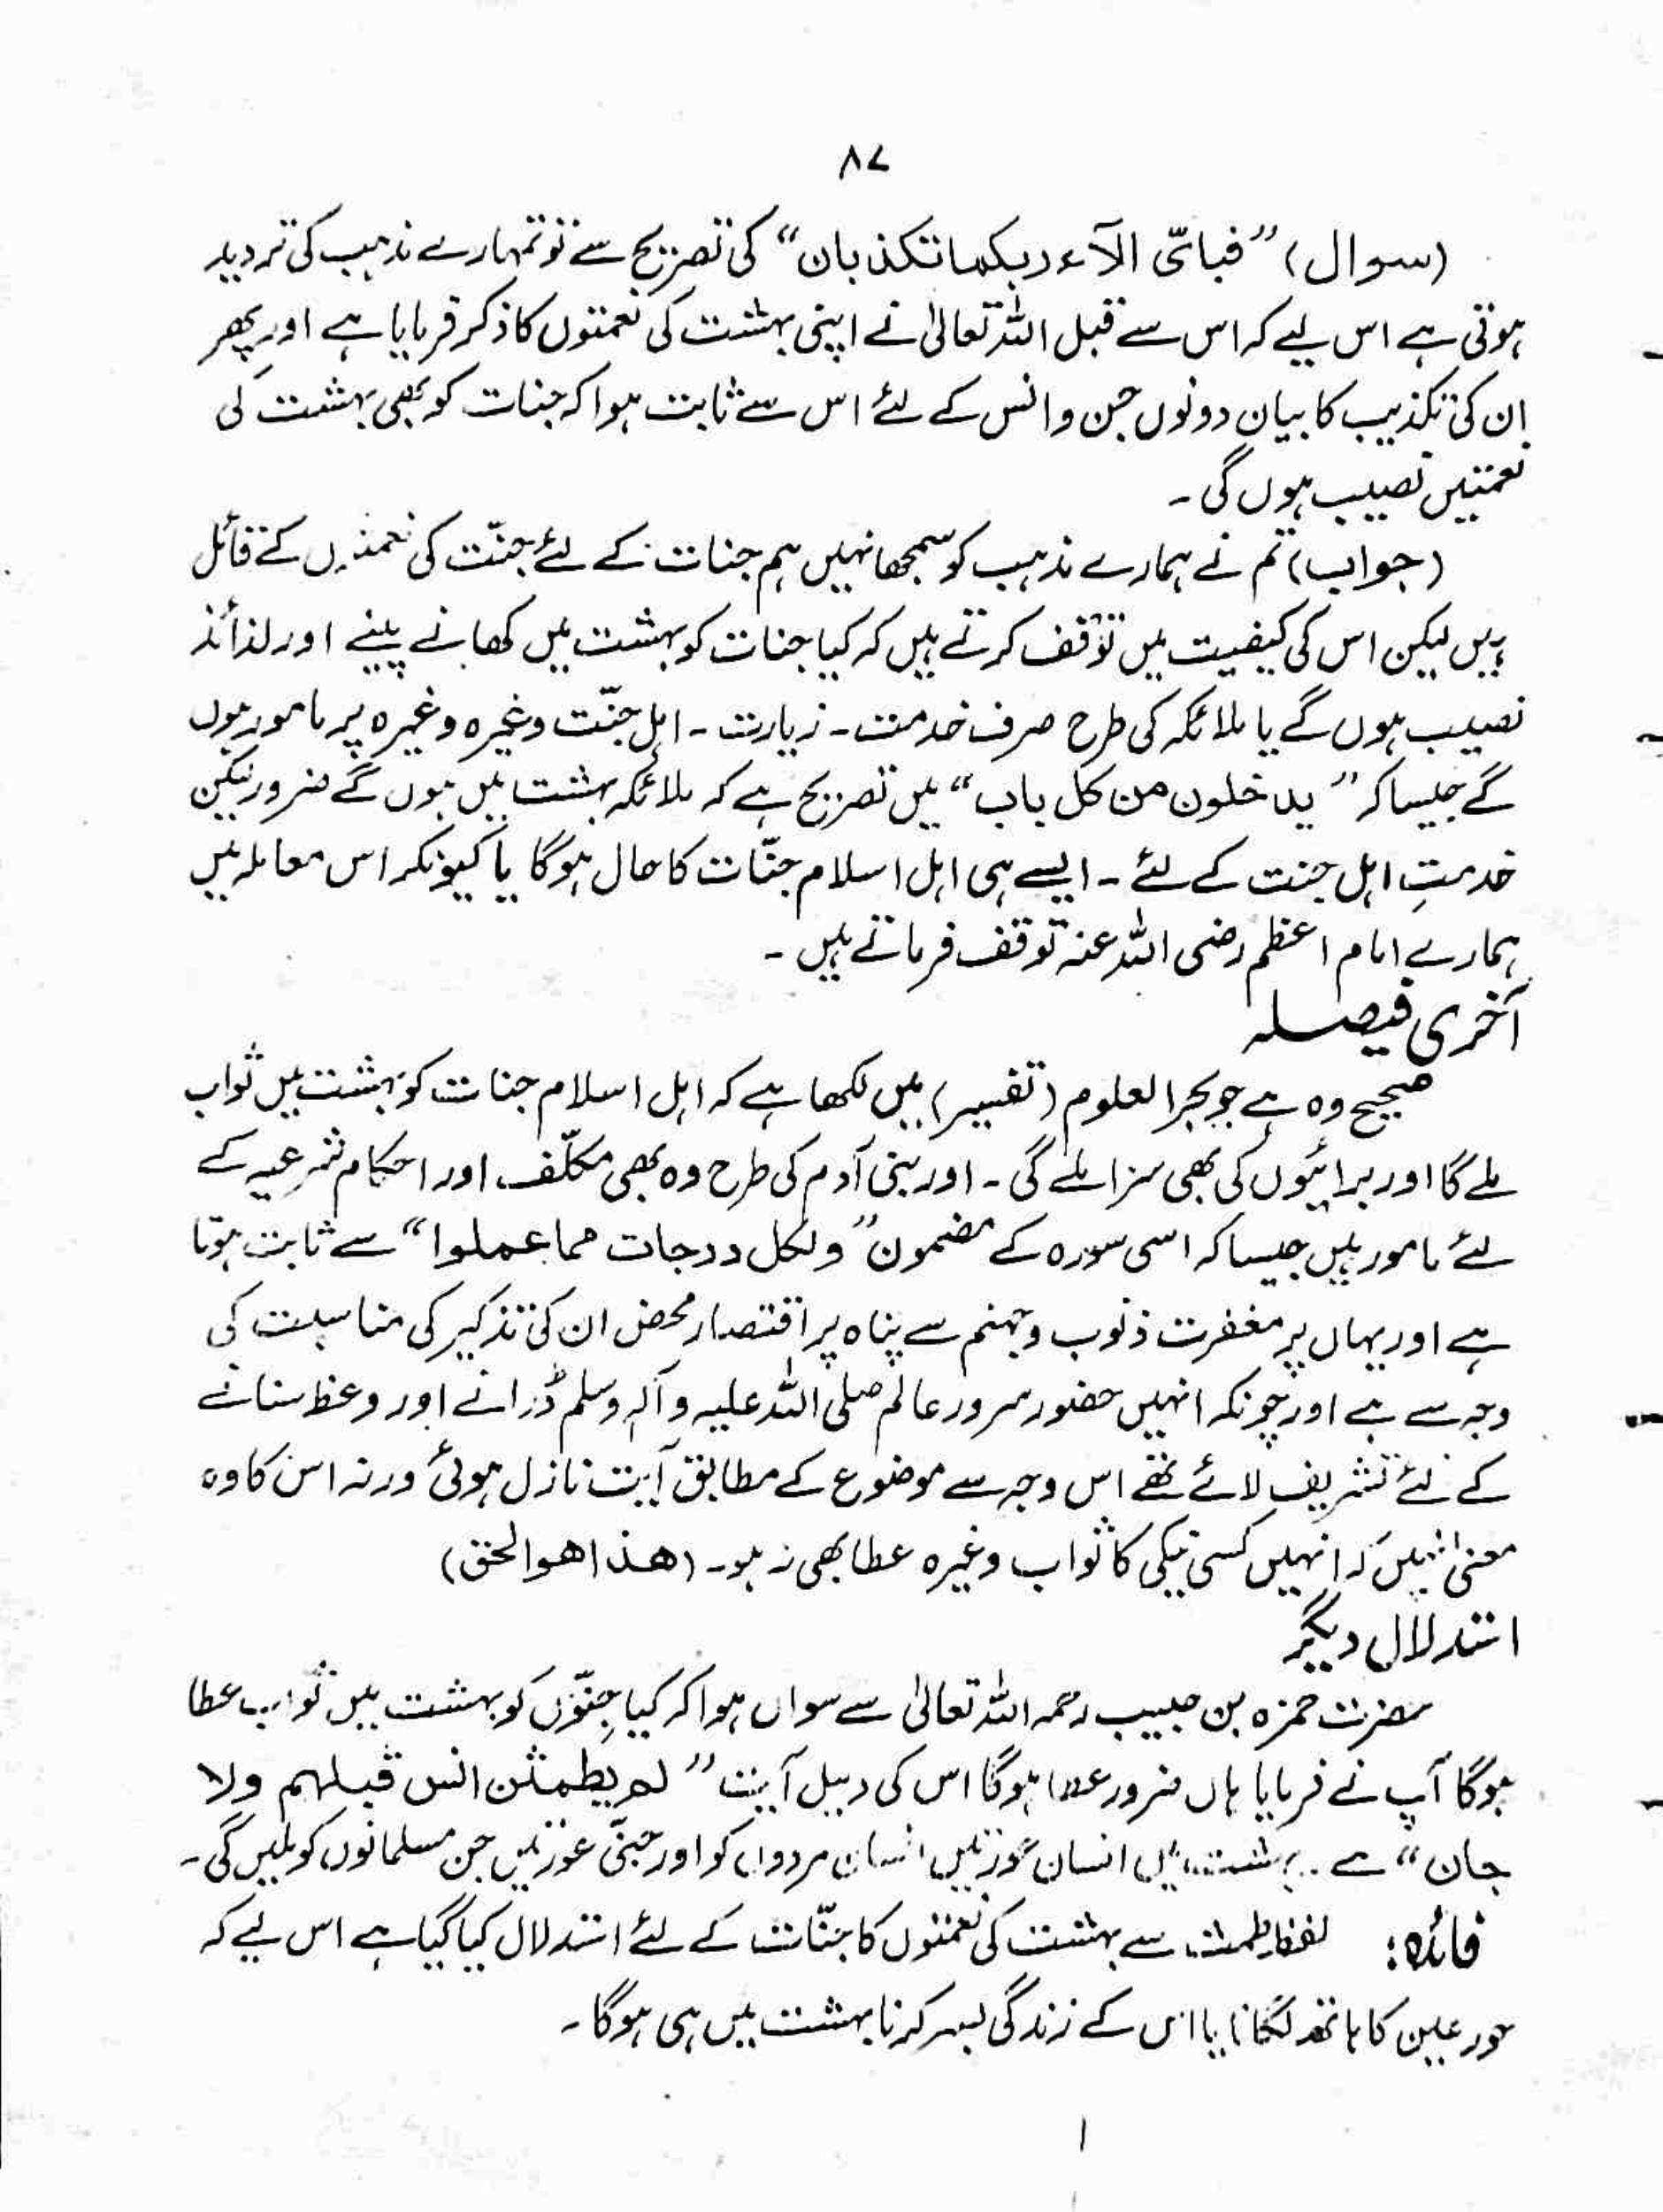 ۸۷
(سوال) ”فبائّ الآء ربکما تکذبان“ کی تصریح سے تو تمہارے مذہب کی تردید
ہوتی ہے اس لیے کہ اس سے قبل اللہ تعالیٰ نے اپنی بہشت کی نعمتوں کا ذکر فرمایا ہے اور پھر
ان کی تکذیب کا بیان دونوں جن و انس کے لئے اس سے ثابت ہوا کہ جنات کو بھی بہشت کی
نعمتیں نصیب ہوں گی ۔
(جواب) تم نے ہمارے مذہب کو سمجھا نہیں ہم جنات کے لئے جنّت کی نعمتوں کے قائل
ہیں لیکن اس کی کیفیت میں توقف کرتے ہیں کہ کیا جنات کو بہشت میں کھانے پینے اور لذائذ
نصیب ہوں گے یا ملائکہ کی طرح صرف خدمت ۔ زیارت ۔ اہل جنّت وغیرہ وغیرہ پر مامور ہوں
گے جیسا کہ ”یدخلون من کل باب“ میں تصریح ہے کہ ملائکہ بہشت میں ہوں گے ضرور لیکن
خدمتِ اہل جنت کے لئے ۔ ایسے ہی اہل اسلام جنّات کا حال ہوگا یا کیونکر اس معاملہ میں
ہمارے امام اعظم رضی اللہ عنہ توقف فرماتے ہیں ۔
آخری فیصلہ
صحیح وہ ہے جو بحر العلوم (تفسیر) میں لکھا ہے کہ اہل اسلام جنات کو بہشت میں ثواب
ملے گا اور برائیوں کی بھی سزا ملے گی ۔ اور بنی آدم کی طرح وہ بھی مکلّف اور احکام شرعیہ کے
لئے مامور ہیں جیسا کہ اسی سورہ کے مضمون ”ولکل درجات مما عملوا“ سے ثابت ہوتا
ہے اور یہاں پر مغفرت ذنوب و جہنم سے پناہ پر اقتصار محض ان کی تذکیر کی مناسبت کی
وجہ سے ہے اور چونکہ انہیں حضور سرور عالم صلی اللہ علیہ وآلہ وسلم ڈرانے اور وعظ سنانے
کے لئے تشریف لائے تھے اس وجہ سے موضوع کے مطابق آیت نازل ہوئی ورنہ اس کا وہ
معنیٰ نہیں کہ انہیں کسی نیکی کا ثواب وغیرہ عطا بھی نہ ہو۔ (ھذا ھو الحق)
استدلال دیگر
حضرت حمزہ بن حبیب رحمہ اللہ تعالیٰ سے سوال ہوا کہ کیا جِنّوں کو بہشت میں ثواب عطا
ہوگا آپ نے فرمایا ہاں ضرور عطا ہوگا اس کی دلیل آیت ”لم یطمثن انس قبلہم ولا
جان“ ہے ۔ بہشت میں انسان عورتیں انسان مردوں کو اور جنّی عورتیں جن مسلمانوں کو ملیں گی ۔
فائدہ: لفظ طمث سے بہشت کی نعمتوں کا جنّات کے لئے استدلال کیا گیا ہے اس لیے کہ
حور عین کا ہاتھ لگانا یا اس کے زندگی بسر کرنا بہشت میں ہی ہوگا ۔